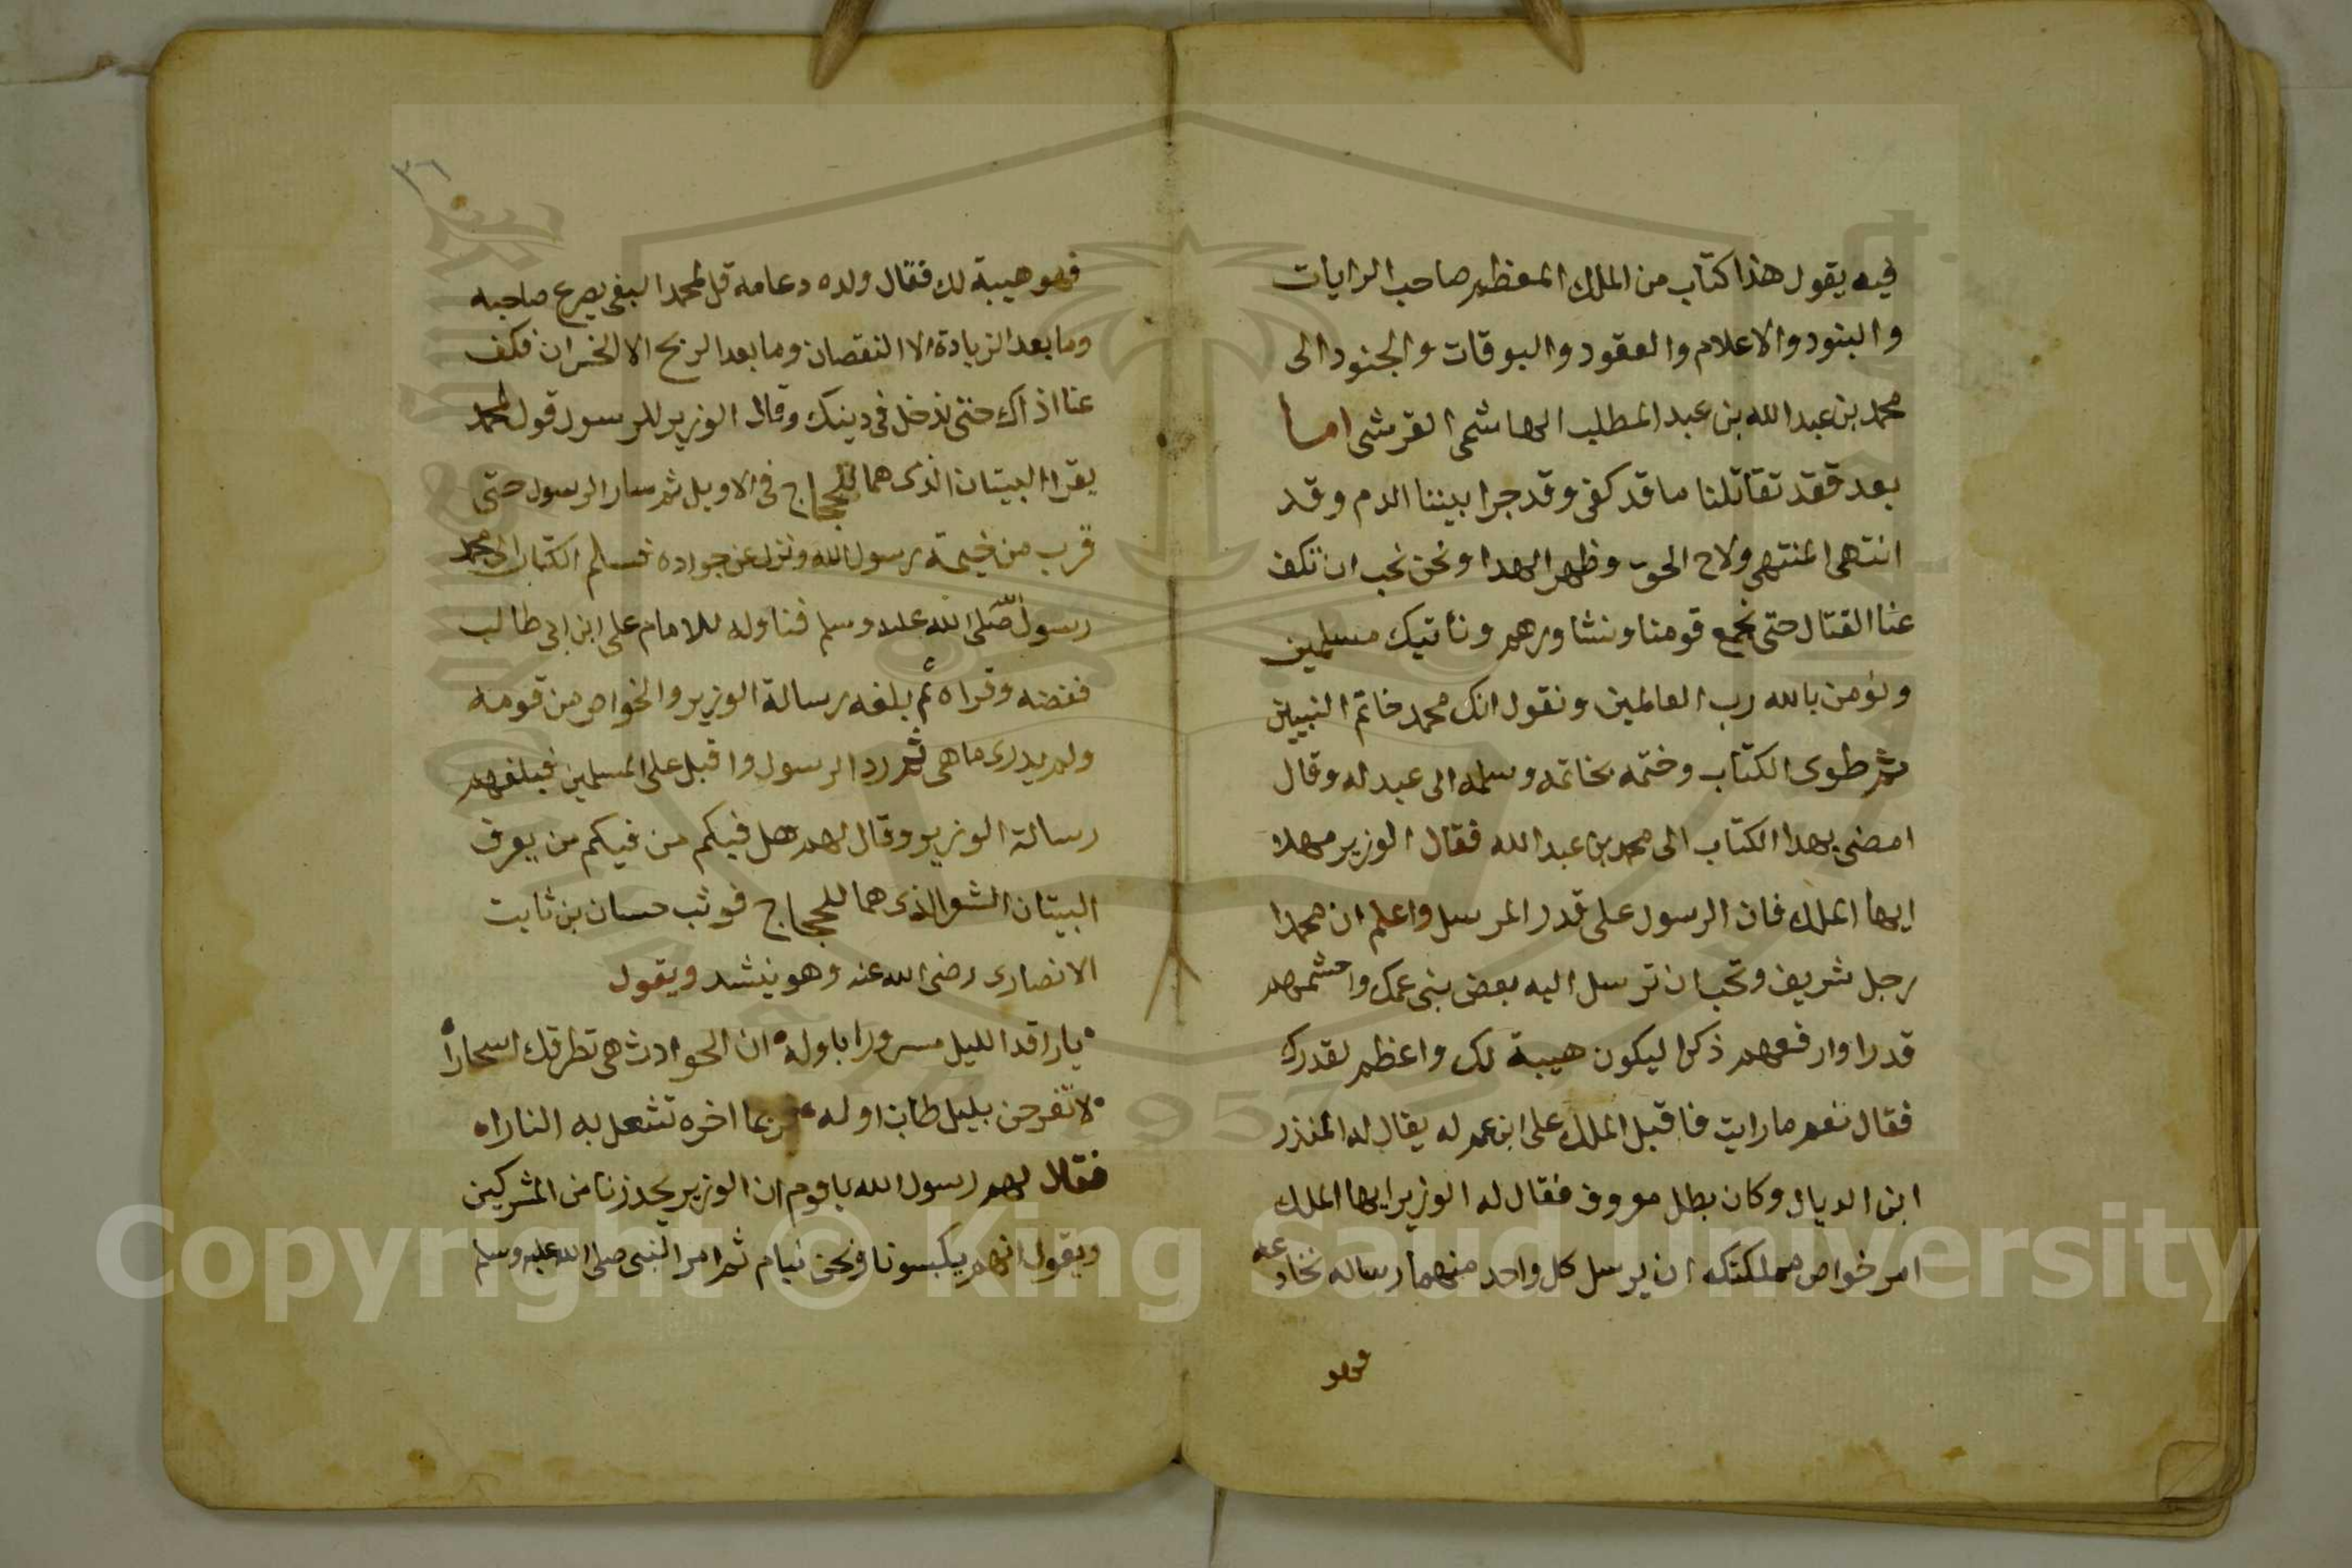 فيه يقول هذا كتاب من الملك المعظم صاحب الرايات
والبنود والاعلام والعقود والبوقات والجنود الى
محمد بن عبد الله بن عبد المطلب الهاشمى القرشى اما
بعد فقد تقاتلنا ما قد كفى وقد جرا بيننا الدم وقد
انتهى المنتهى ولاح الحق وظهر الهدا ونحن نحب ان تكف
عنا القتال حتى نجمع قومنا ونشاورهم ونأتيك مسلمين
ونؤمن بالله رب العالمين ونقول انك محمد خاتم النبيين
ثم طوى الكتاب وختمه بخاتمه وسلمه الى عبد له وقال
امضى بهدا الكتاب الى محمد بن عبد الله فقال الوزير مهلا
ايها الملك فان الرسول على قدر المرسل واعلم ان محمدا
رجل شريف وتحب ان ترسل اليه بعض بنى عمك واحشمهم
قدرا وارفعهم ذكرا ليكون هيبة لك واعظم لقدرك
فقال نعم ما رايت فاقبل الملك على ابن عم له يقال له المنذر
ابن الديال وكان بطل معروف فقال له الوزير ايها الملك
امر خواص مملكتك ان يرسل كل واحد منهما رساله نخادعه
فهو
٣٦
فهو هيبة لك فقال ولده دعامه قل لمحمد البغى يصرع صاحبه
وما بعد الزيادة الا النقصان وما بعد الربح الا الخسران فكف
عنا اذاك حتى ندخل فى دينك وقال الوزير للرسول قول لمحمد
يقرا البيتان الذى هما للحجاج فى الاويل ثم سار الرسول حتى
قرب من خيمة رسول الله ونزل عن جواده فسلم الكتاب الى محمد
رسول صلى الله عليه وسلم فناوله للامام على ابن ابى طالب
ففضه وقراه ثم بلغه رسالة الوزير والخواص من قومه
ولم يدرى ما هى ثم رد الرسول واقبل على المسلمين فبلغهم
رسالة الوزير وقال لهم هل فيكم من فيكم من يعرف
البيتان الشعر الذى هما للحجاج فوثب حسان بن ثابت
الانصارى رضى الله عنه وهو ينشد ويقول
يا راقد الليل مسرورا باوله ان الحوادث هى تطرقك اسحارا
لا تفرحن بليل طاب اوله فربما اخره تشعل به النارا
فقال لهم رسول الله يا قوم ان الوزير يحذرنا من المشركين
ويقول انهم يكبسونا ونحن نيام ثم امر النبى صلى الله عليه وسلم
Copyright © King Saud University
1957